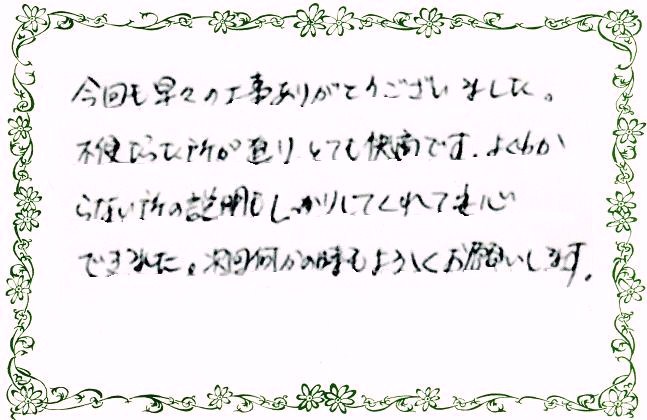 今回も早々の工事ありがとうございました。
不便だった所が直りとても快適です。よくわか
らない所の説明もしっかりしてくれて安心
できました。次回何かの時もよろしくお願いします。